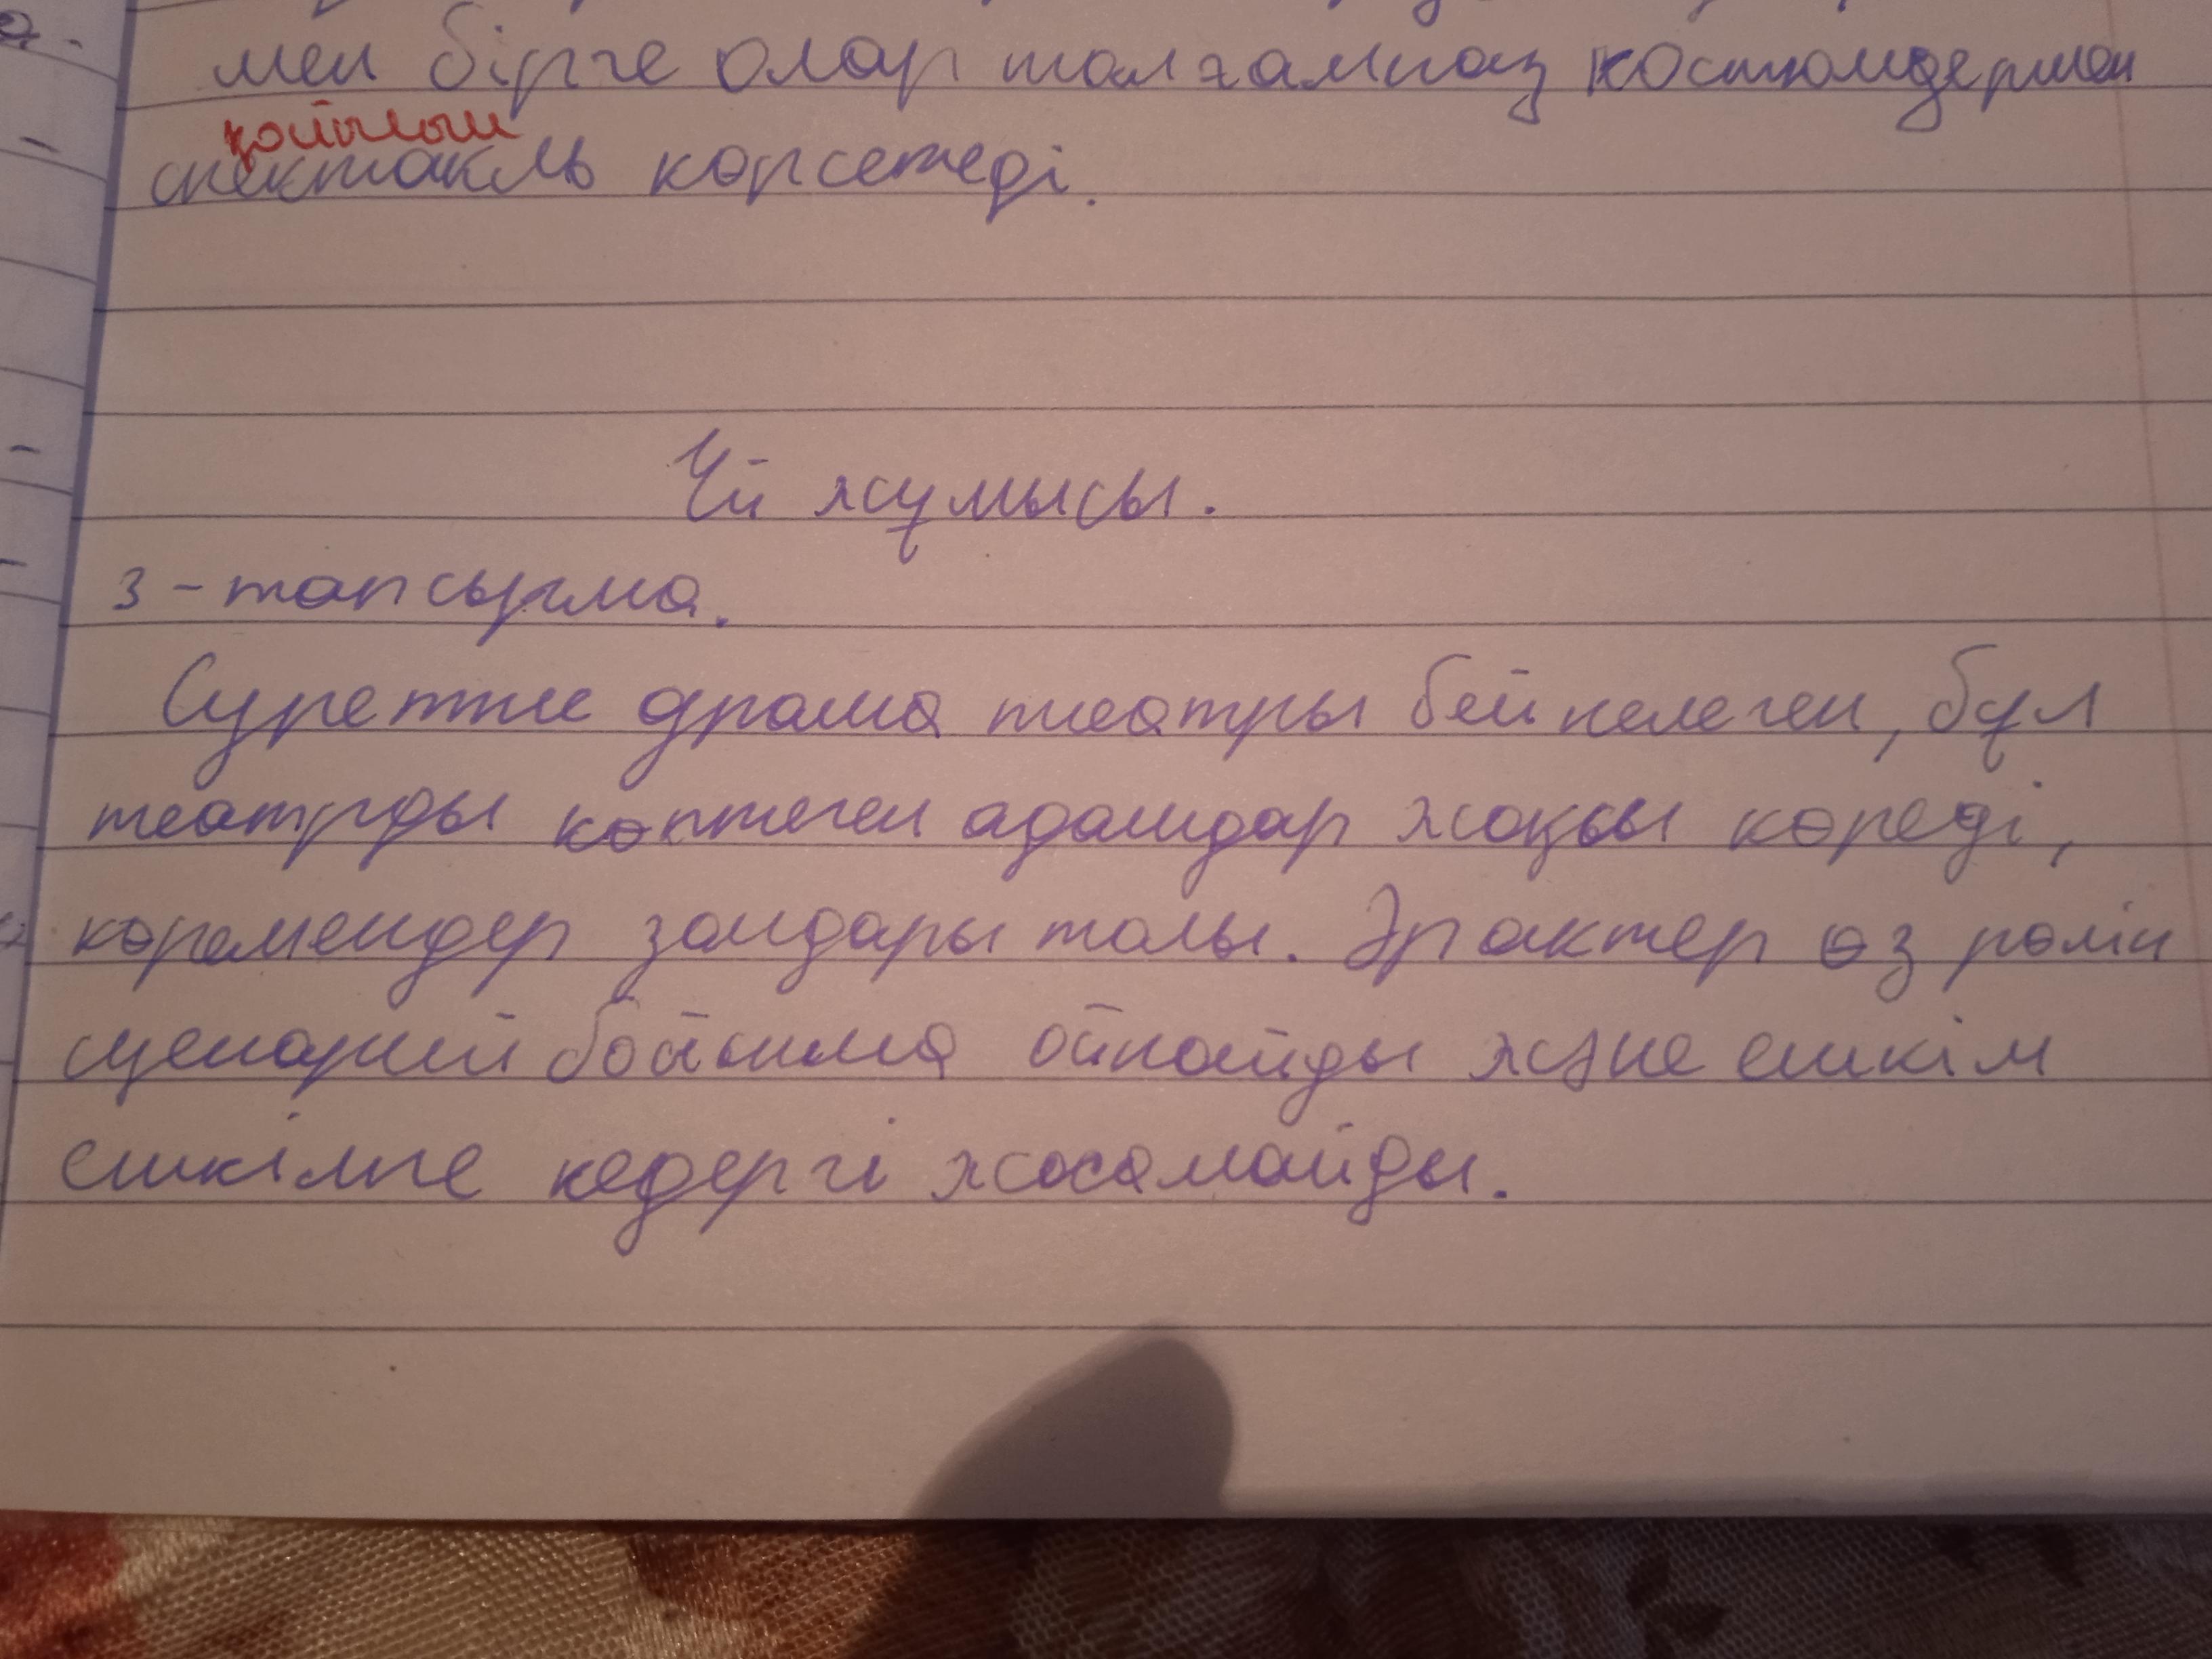 мен бірге олар талғампаз костюмдермен
қойылым
спектакль көрсетеді.
Үй жұмысы.
3-тапсырма.
Суретте драма театры бейнелеген, бұл
театрды көптеген адамдар жақсы көреді,
көремендер залдары толы. Әр актер өз рөлін
сценарий бойынша ойнайды және ешкім
ешкімге кедергі жасамайды.